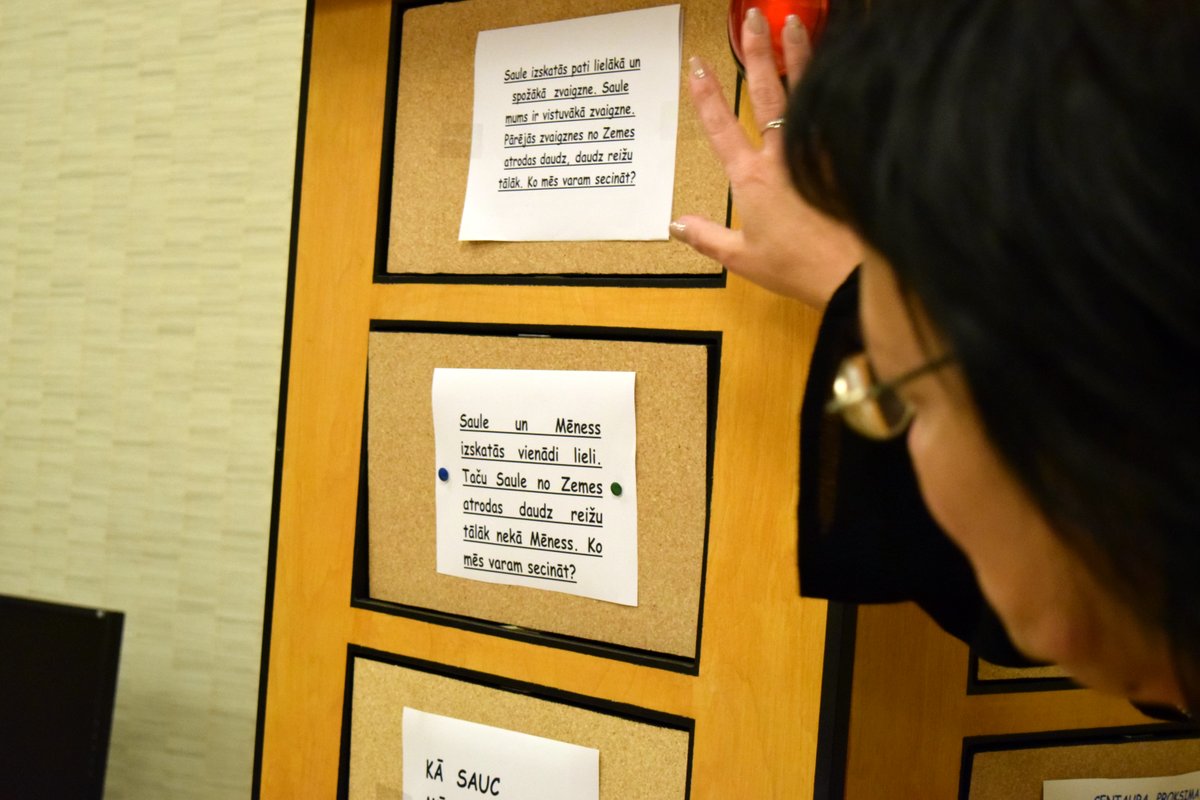 Saule izskatās pati lielākā un
spožākā zvaigzne. Saule
mums ir vistuvākā zvaigzne.
Pārējās zvaigznes no Zemes
atrodas daudz, daudz reižu
tālāk. Ko mēs varam secināt?
Saule un Mēness
izskatās vienādi lieli.
Taču Saule no Zemes
atrodas daudz reižu
tālāk nekā Mēness. Ko
mēs varam secināt?
KĀ SAUC
CENTAURA PROKSIMA